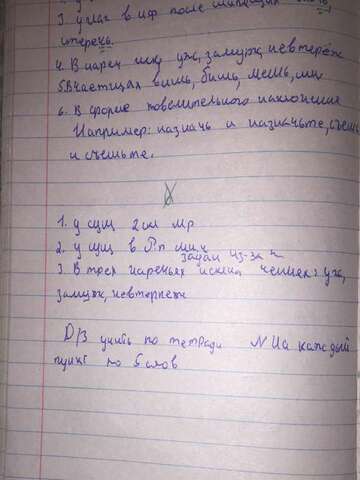 3. у глаг в нф после шипящих
стеречь.
4. В нареч искл уж, замуж, невтерёж
5. В частицах вишь, бишь, лишь, ишь
6. В форме повелительного наклонения
Например: назначь и назначьте, съешь
и съешьте.
ь
1. у сущ 2 скл мр
2. у сущ в Рп мн.ч
задач из-за ч
3. В трех наречьях исключениях: уж,
замуж, невтерпеж
D/З учить по тетради На каждый
пункт по 5 слов